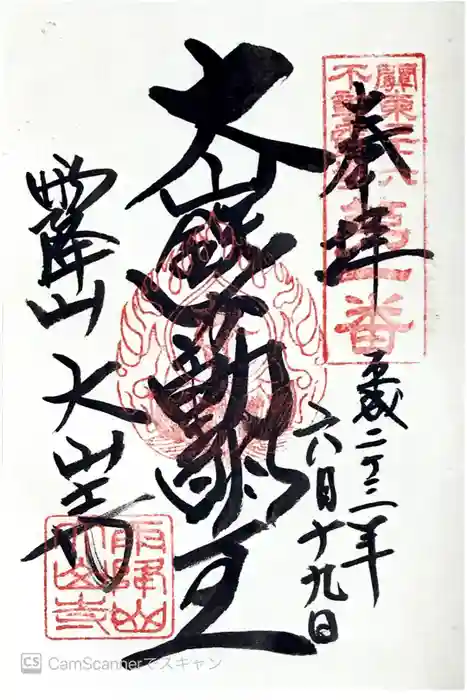 關東三十六
不動霊場
第一番
奉拝
平成二十三年
六月十九日
大山鐵不動明王
雨降山
大山寺
雨降山
大山寺
CamScannerでスキャン